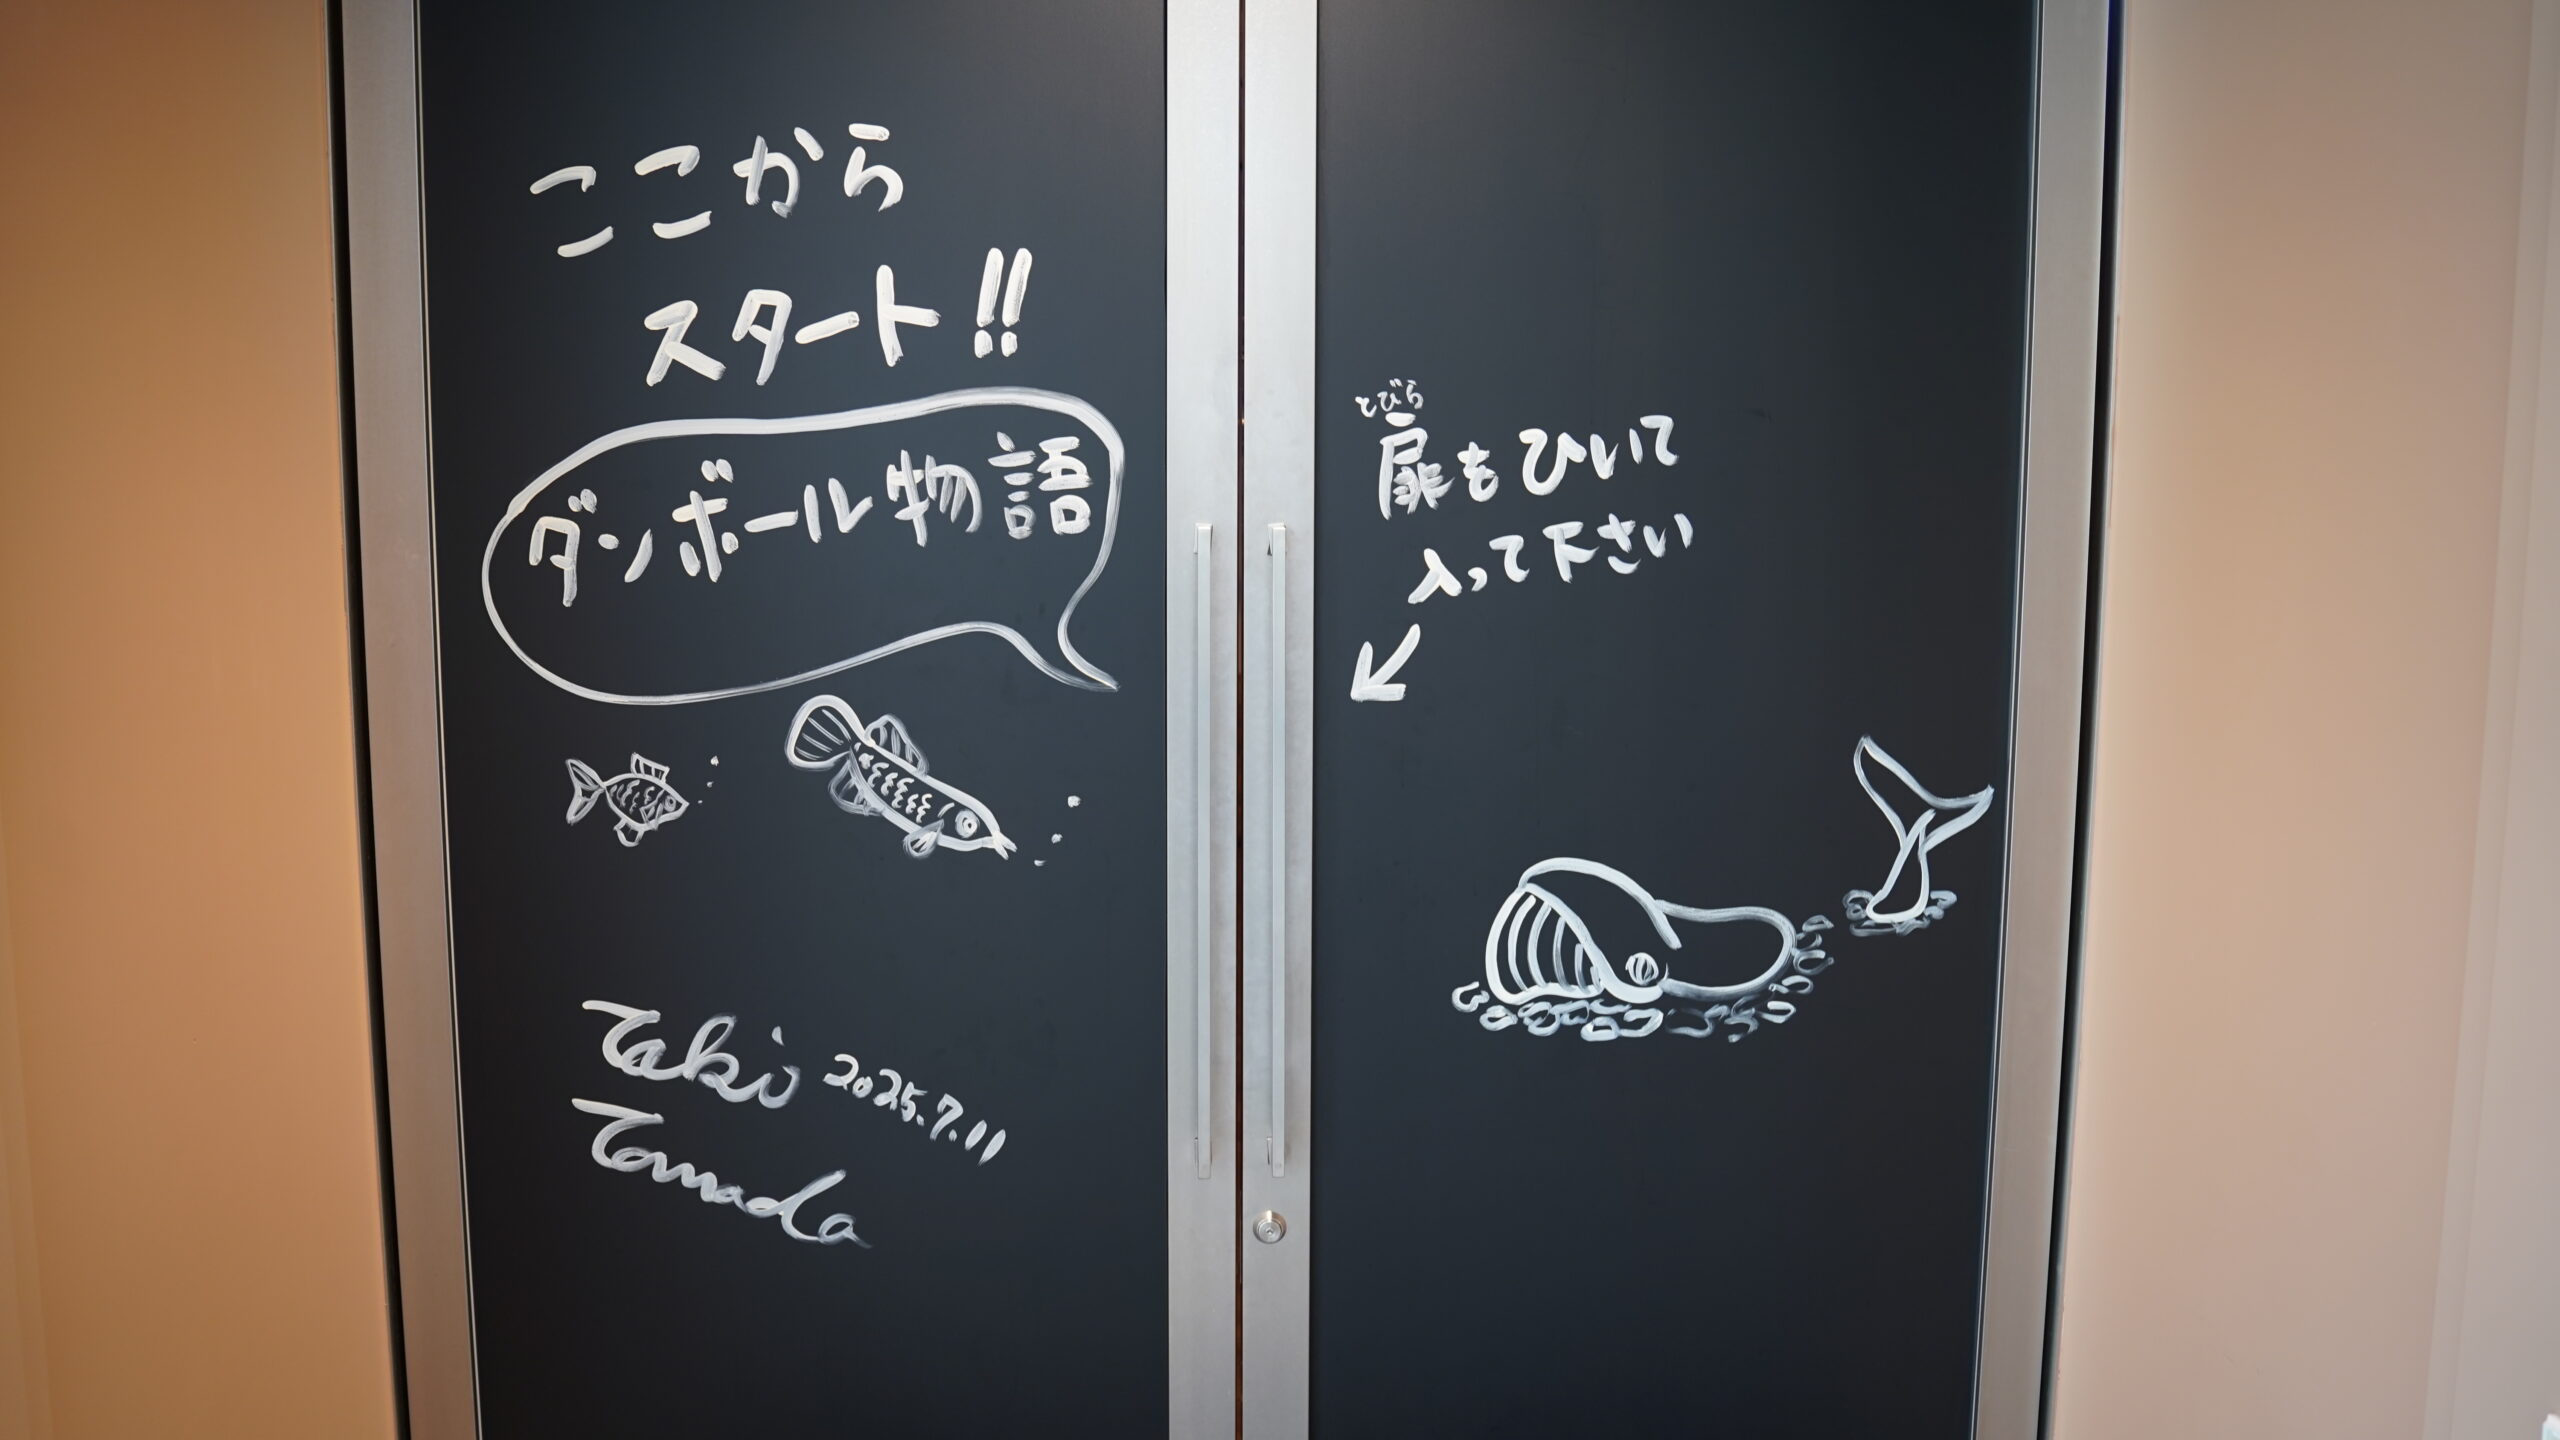 ここから
スタート!!
ダンボール物語
とびら
扉をひいて
入って下さい
Taki 2025.7.11
Tamada